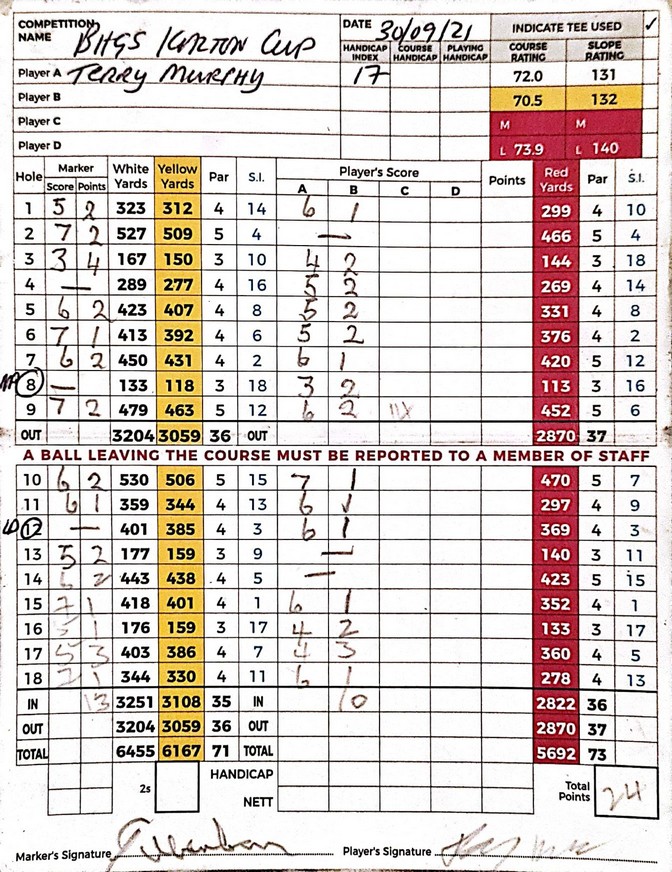 COMPETITION NAME BHGS KORTON CUP DATE 30/09/21 INDICATE TEE USED ✓
HANDICAP INDEX COURSE HANDICAP PLAYING HANDICAP COURSE RATING SLOPE RATING
Player A TERRY MURPHY 17 72.0 131
Player B 70.5 132
Player C M M
Player D L 73.9 L 140
Hole Marker White Yards Yellow Yards Par S.I. Player's Score Points Red Yards Par S.I.
Score Points A B C D
1 5 2 323 312 4 14 6 1 299 4 10
2 7 2 527 509 5 4 — 466 5 4
3 3 4 167 150 3 10 4 2 144 3 18
4 — 289 277 4 16 5 2 269 4 14
5 6 2 423 407 4 8 5 2 331 4 8
6 7 1 413 392 4 6 5 2 376 4 2
7 6 2 450 431 4 2 6 1 420 5 12
NP 8 — 133 118 3 18 3 2 113 3 16
9 7 2 479 463 5 12 6 2 452 5 6
OUT 3204 3059 36 OUT 2870 37
A BALL LEAVING THE COURSE MUST BE REPORTED TO A MEMBER OF STAFF
10 6 2 530 506 5 15 7 1 470 5 7
11 6 1 359 344 4 13 6 1 297 4 9
LD 12 — 401 385 4 3 6 1 369 4 3
13 5 2 177 159 3 9 — 140 3 11
14 6 2 443 438 4 5 — 423 5 15
15 7 1 418 401 4 1 6 1 352 4 1
16 5 1 176 159 3 17 4 2 133 3 17
17 5 3 403 386 4 7 4 3 360 4 5
18 7 1 344 330 4 11 6 1 278 4 13
IN 13 3251 3108 35 IN 10 2822 36
OUT 3204 3059 36 OUT 2870 37
TOTAL 6455 6167 71 TOTAL 5692 73
2s HANDICAP Total Points 24
NETT
Marker's Signature Player's Signature